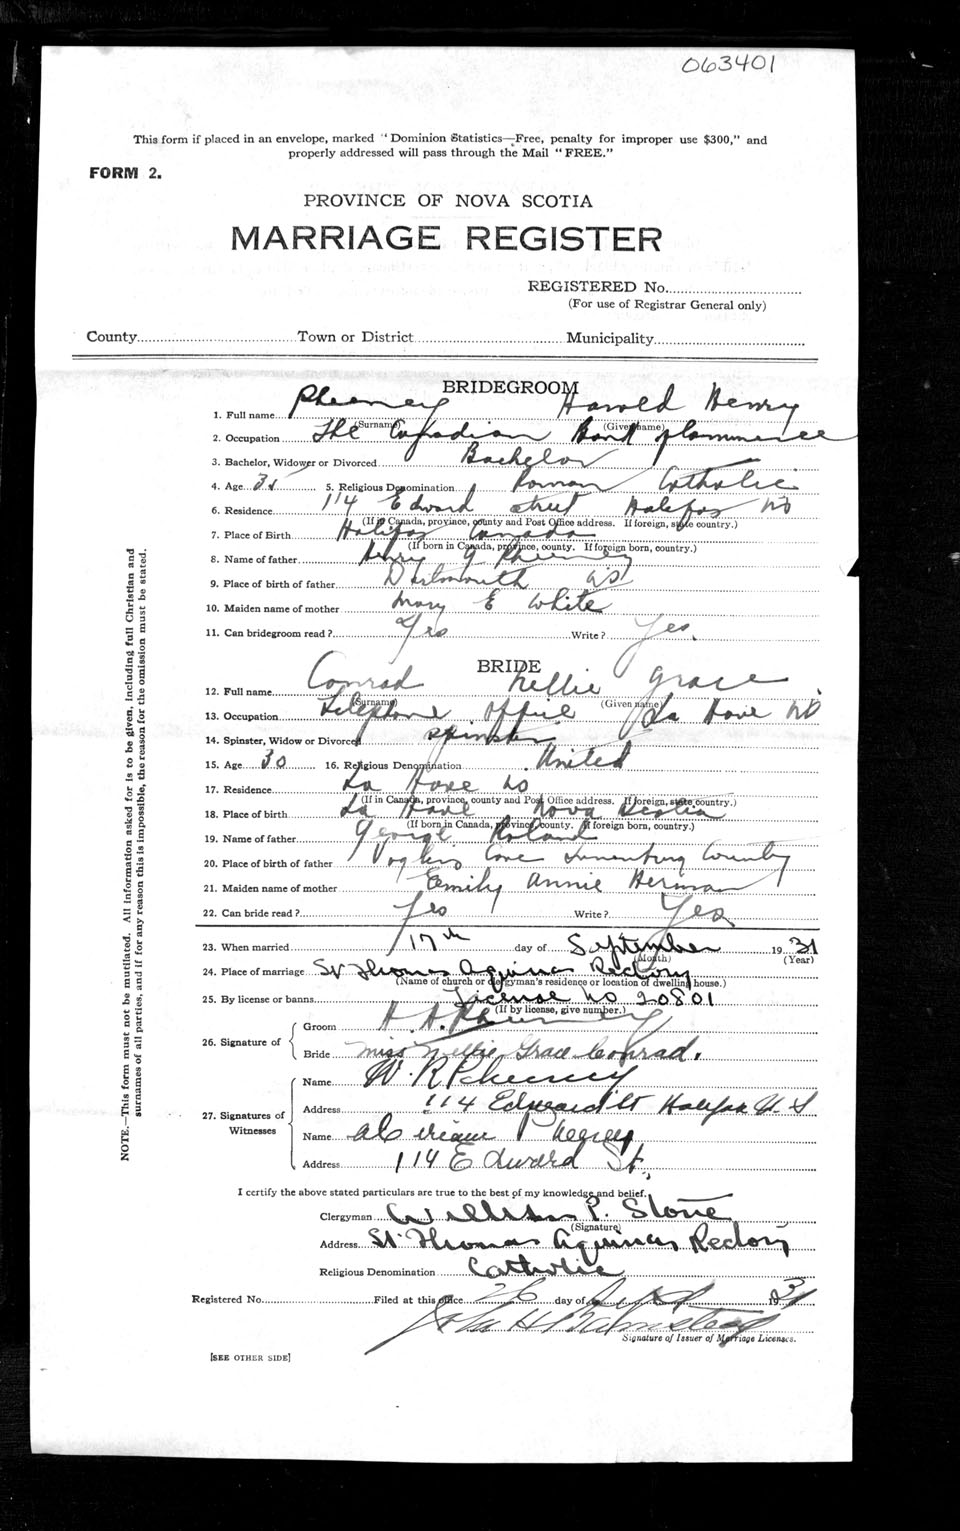 063401
This form if placed in an envelope, marked "Dominion Statistics—Free, penalty for improper use $300," and
properly addressed will pass through the Mail "FREE."
FORM 2.
PROVINCE OF NOVA SCOTIA
MARRIAGE REGISTER
REGISTERED No.
(For use of Registrar General only)
County Town or District Municipality
BRIDEGROOM
1. Full name Pheeney Harold Henry
(Surname) (Given name)
2. Occupation The Canadian Bank of Commerce
3. Bachelor, Widower or Divorced Bachelor
4. Age 5. Religious Denomination Roman Catholic
6. Residence 114 Edward street Halifax NS
(If in Canada, province, county and Post Office address. If foreign, state country.)
7. Place of Birth Halifax Canada
(If born in Canada, province, county. If foreign born, country.)
8. Name of father Henry Pheeney
9. Place of birth of father Dartmouth NS
10. Maiden name of mother Mary E White
11. Can bridegroom read? Yes Write? Yes.
BRIDE
12. Full name Conrad Nellie Grace
(Surname) (Given name)
13. Occupation Telephone office La Have NS
14. Spinster, Widow or Divorced Spinster
15. Age 30 16. Religious Denomination United
17. Residence La Have NS
(If in Canada, province, county and Post Office address. If foreign, state country.)
18. Place of birth La Have Nova Scotia
(If born in Canada, province, county. If foreign born, country.)
19. Name of father George Roland
20. Place of birth of father Voglers Cove Lunenburg County
21. Maiden name of mother Emily Annie Herman
22. Can bride read? Yes Write? Yes
23. When married 17th day of September 1931
(Month) (Year)
24. Place of marriage St Thomas Aquinas Rectory
(Name of church or clergyman's residence or location of dwelling house.)
25. By license or banns License No 20801
(If by license, give number.)
26. Signature of
Groom H. H. Pheeney
Bride Miss Nellie Grace Conrad.
27. Signatures of Witnesses
Name W. R. Pheeney
Address 114 Edward St Halifax N. S
Name Pheeney
Address 114 Edward St.,
I certify the above stated particulars are true to the best of my knowledge and belief.
Clergyman William P. Stone
(Signature)
Address St. Thomas Aquinas Rectory
Religious Denomination Catholic
Registered No. Filed at this office 26 day of Sept 1931
John H
Signature of Issuer of Marriage Licenses.
[SEE OTHER SIDE]
NOTE.—This form must not be mutilated. All information asked for is to be given, including full Christian and
surnames of all parties, and if for any reason this is impossible, the reason for the omission must be stated.